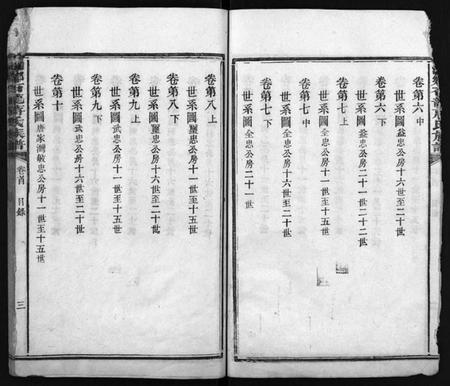 卷第六中
世系圖益忠公房十六世至二十世
卷第六下
世系圖益忠公房二十一世至二十二世
卷第七上
世系圖全忠公房十一世至十五世
卷第七中
世系圖全忠公房十六世至二十世
卷第七下
世系圖全忠公房二十一世至二十二世
卷第八上
世系圖團忠公房十一世至十五世
卷第八下
世系圖團忠公房十六世至二十世
卷第九上
世系圖武忠公房十一世至十五世
卷第九下
世系圖武忠公房十六世至二十世
卷第十
世系圖唐家洲敏忠公房十一世至十五世
氏族譜
卷首 目錄 三